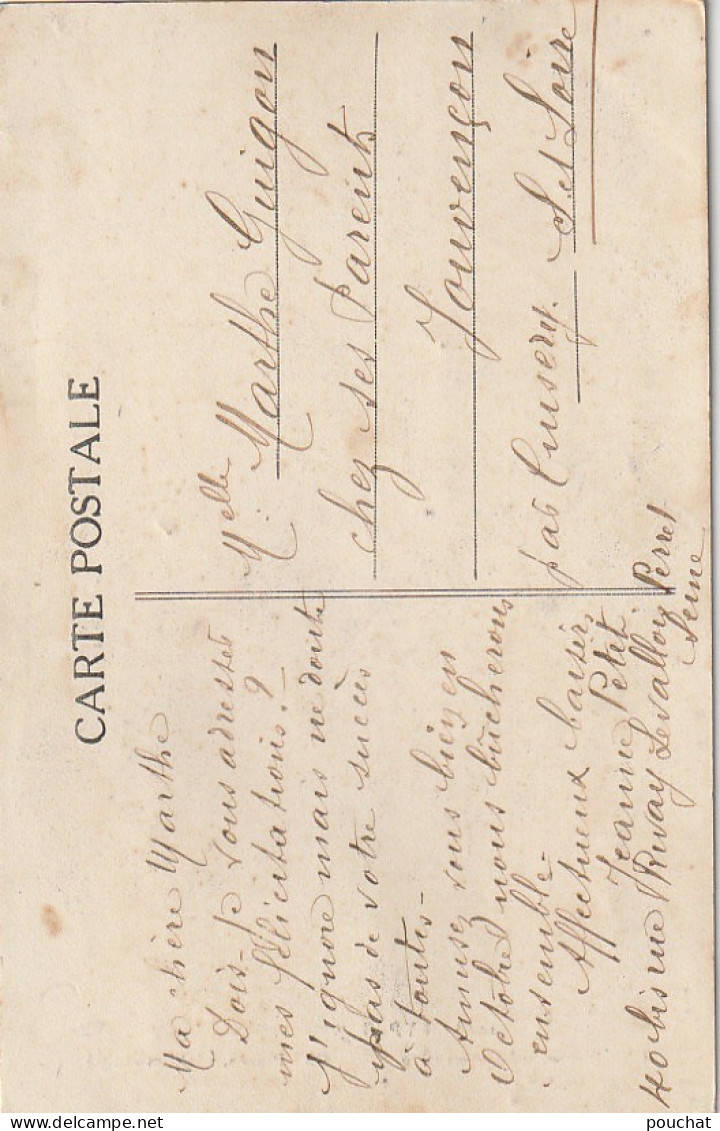 CARTE POSTALE
Ma chère Marthe
Dois-je vous adresser
mes félicitations?
J'ignore mais ne doute
pas de votre succès
à toutes-
Amusez vous bien en
Octobre nous bûcherons
ensemble-
Affectueux baisers
Jeanne Petit.
40 bis rue Rivay Levallois Perret
Seine
Melle Marthe Guigon
chez ses Parents
Jouvençon
par Cuisery. S. et Loire
pouchat